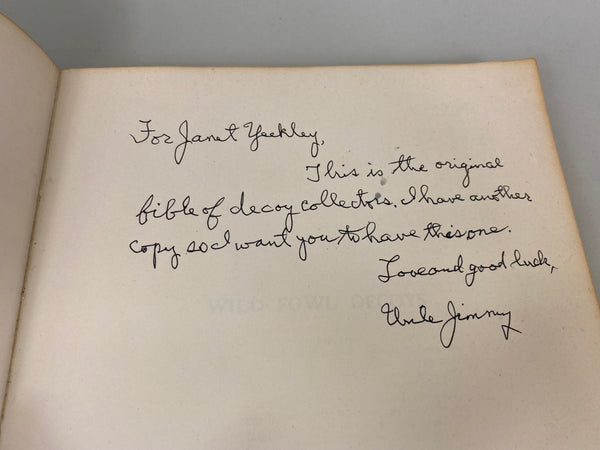 For Janet Yeckley,
This is the original
bible of decoy collectors. I have another
copy so I want you to have this one.
Love and good luck,
Uncle Jimmy
WILD FOWL DECOYS